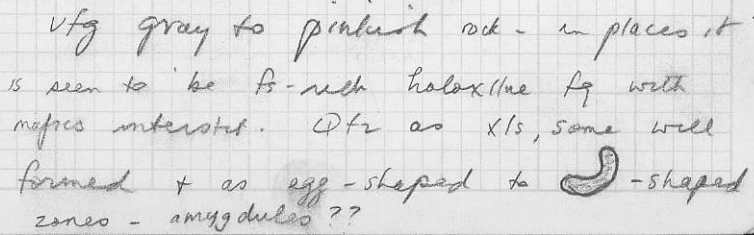 vfg gray to pinkish rock - in places it
is seen to be fs-rich holoxlline fg with
mafics interstit. Qtz as xls, some well
formed + as egg-shaped to -shaped
zones - amygdules ??